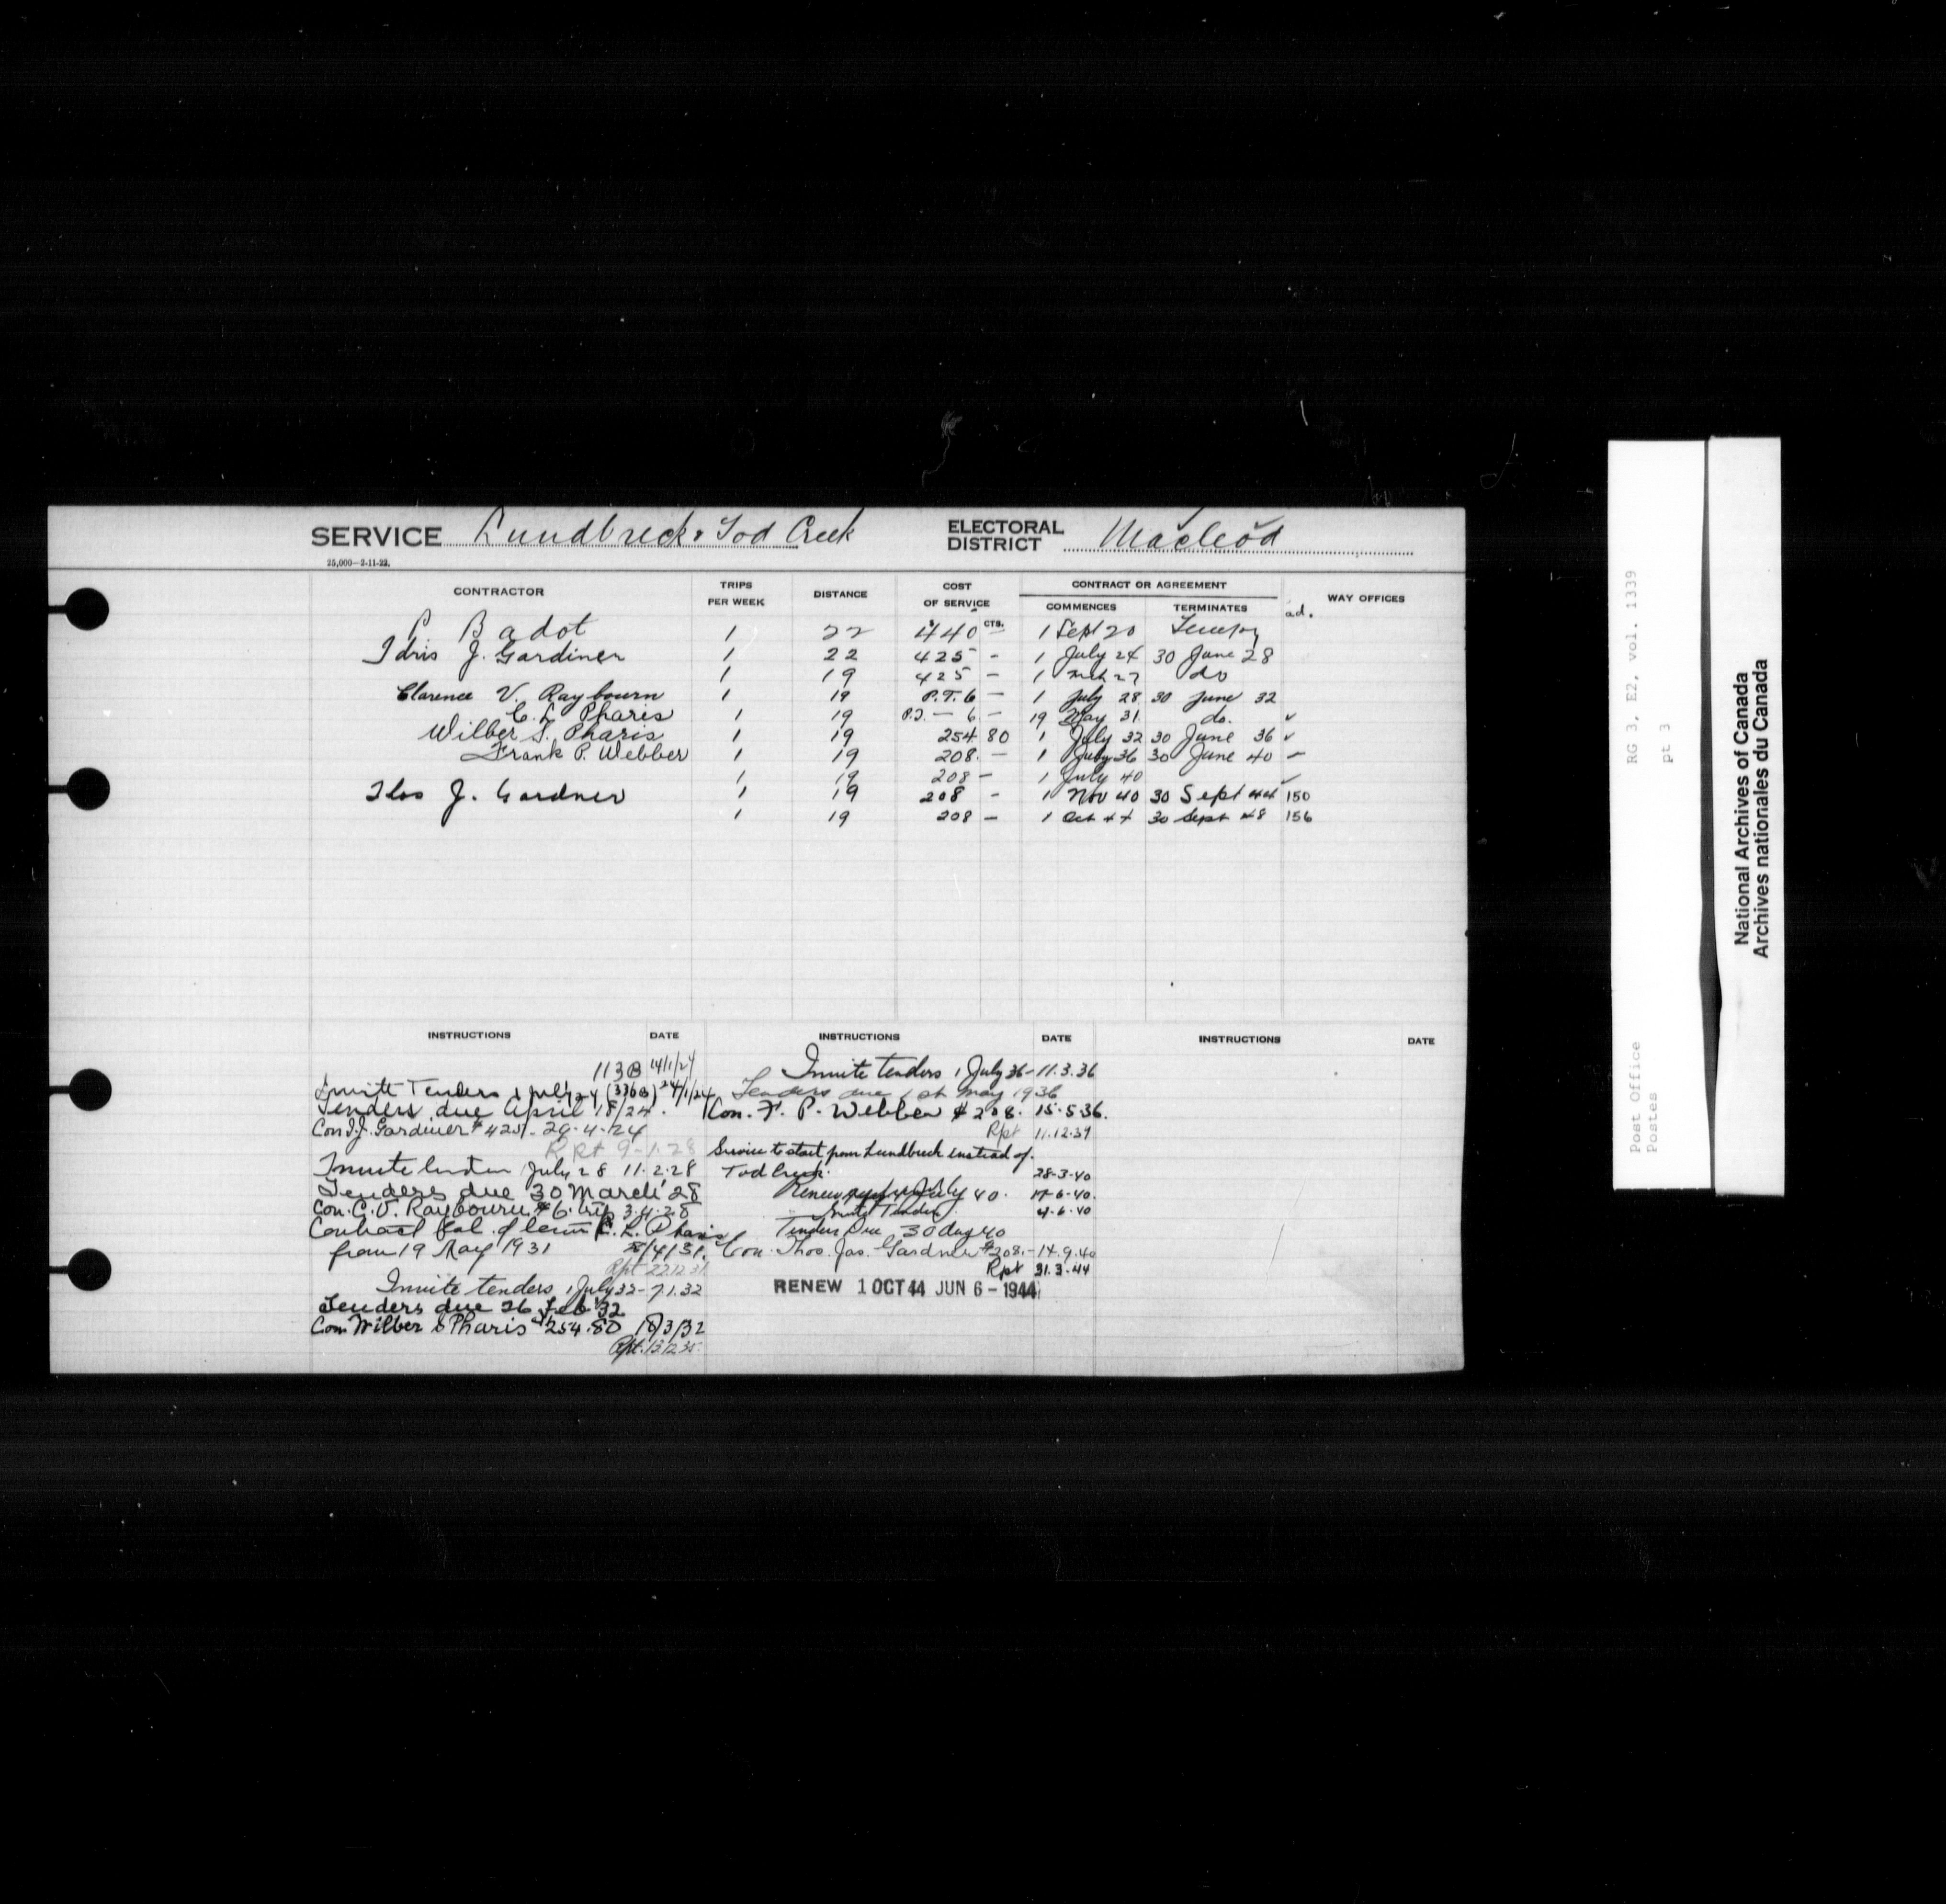 SERVICE Lundbreck & Tod Creek ELECTORAL DISTRICT Macleod
25,000—2-11-22.
CONTRACTOR TRIPS PER WEEK DISTANCE COST OF SERVICE CONTRACT OR AGREEMENT COMMENCES TERMINATES ad. WAY OFFICES
$ CTS.
P Badot 1 22 440 – 1 Sept 20 Tempory
Idris J. Gardiner 1 22 425 - 1 July 24 30 June 28
1 19 425 - 1 Mch 27 do
Clarence V. Raybourn 1 19 P.T. 6 – 1 July 28 30 June 32
C. L. Pharis 1 19 P.T. — 6 – 19 May 31 do. ✓
Wilber S. Pharis 1 19 254 80 1 July 32 30 June 36 ✓
Frank P. Webber 1 19 208. — 1 July 36 30 June 40 –
1 19 208 – 1 July 40
Thos J. Gardner 1 19 208 - 1 Nov 40 30 Sept 44 150
1 19 208 — 1 Oct 44 30 Sept 48 156
INSTRUCTIONS DATE INSTRUCTIONS DATE INSTRUCTIONS DATE
113B 14/1/24
Invite Tenders 1 July 24 (336B) 24/1/24
Tenders due April 18/24.
Con I.J. Gardiner $425. 29-4-24
Rpt 9-1-28
Invite tenders July 28 11-2-28
Tenders due 30 March 28
Con. C. V. Raybourn $6. trip 3-4-28
Contract bal. of term C. L. Pharis
from 19 May 1931 8/4/31.
Rpt 22.12.31
Invite tenders 1 July 32 - 7.1.32
Tenders due 26 Feb 32
Con. Wilber S Pharis $254.80 18/3/32
Rpt. 13.12.35
Invite tenders 1 July 36 - 11.3.36
Tenders due 1st May 1936
Con. F. P. Webber $208. 15-5-36.
Rpt 11.12.39
Service to start from Lundbreck instead of
Tod Creek. 28-3-40
Renew July 40. 17-6-40.
Invite Tenders 4-6-40
Tenders Due 30 Aug 40
Con. Thos. Jas. Gardner $208. - 14.9.40
Rpt 31.3.44
RENEW 1 OCT 44 JUN 6 - 1944
Post Office
Postes
RG 3, E2, vol. 1339
pt 3
National Archives of Canada
Archives nationales du Canada